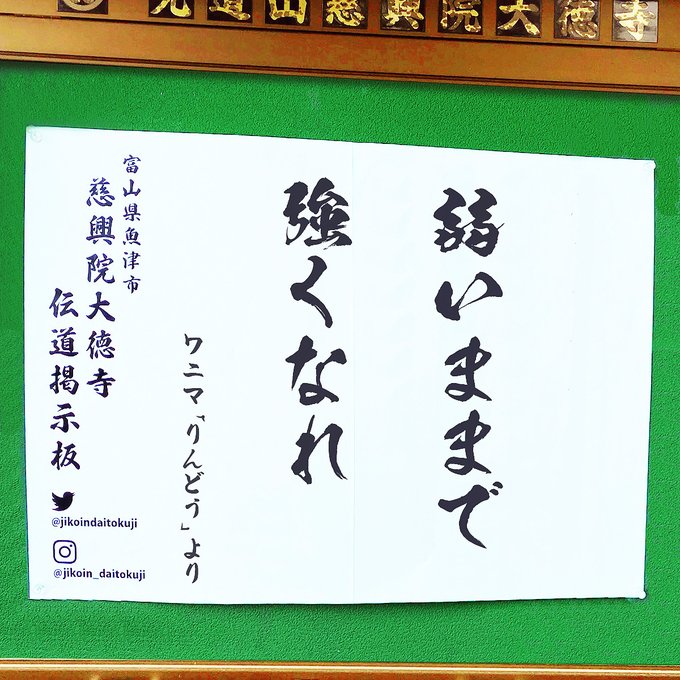 光道山慈興院大徳寺
弱いままで
強くなれ
ワニマ「りんどう」より
富山県魚津市
慈興院大徳寺
伝道掲示板
@jikoindaitokuji
@jikoin_daitokuji